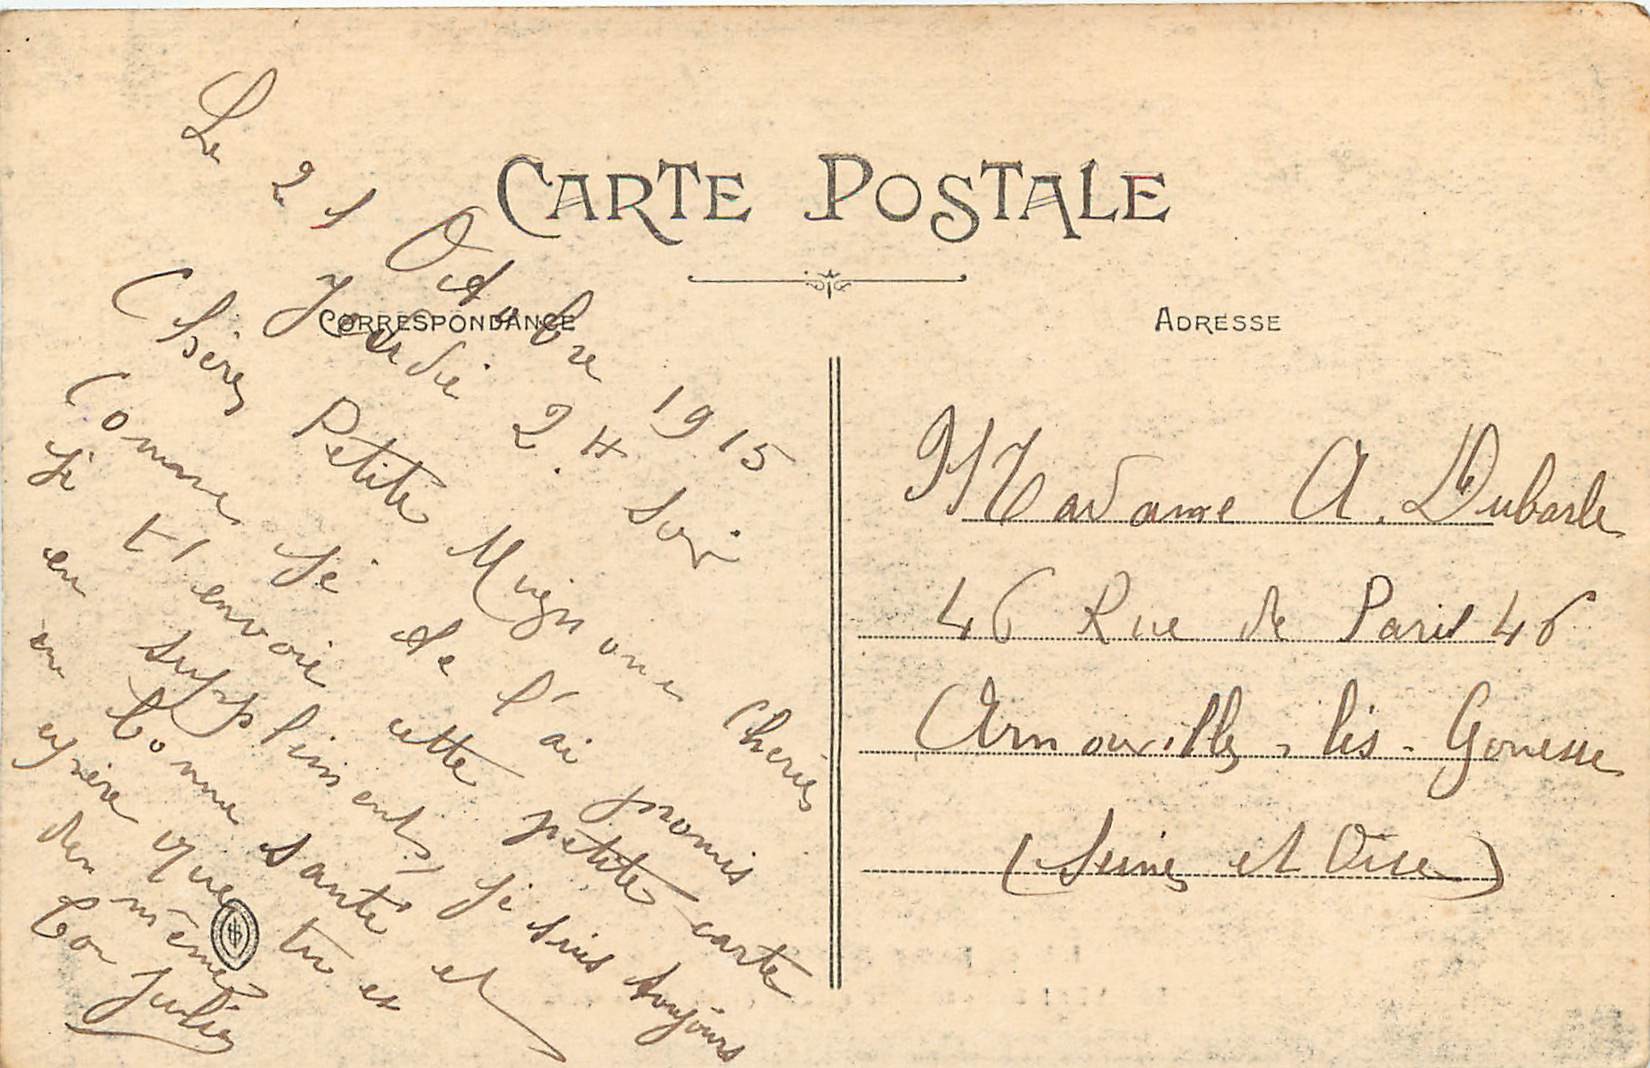 CARTE POSTALE
CORRESPONDANCE
ADRESSE
Le 21 Octobre 1915
Jeudie 2.H Soir
Chères Petite Mignonne Cheries
Comme Je te l'ai promis
Je t'envoie cette petite carte
en suppliments, Je suis toujours
en bonne santé et
espère que tu es
den même
Ton Julien
Madame A. Dubarle
46 Rue de Paris 46
Arnouville-lès-Gonesse
(Seine et Oise)